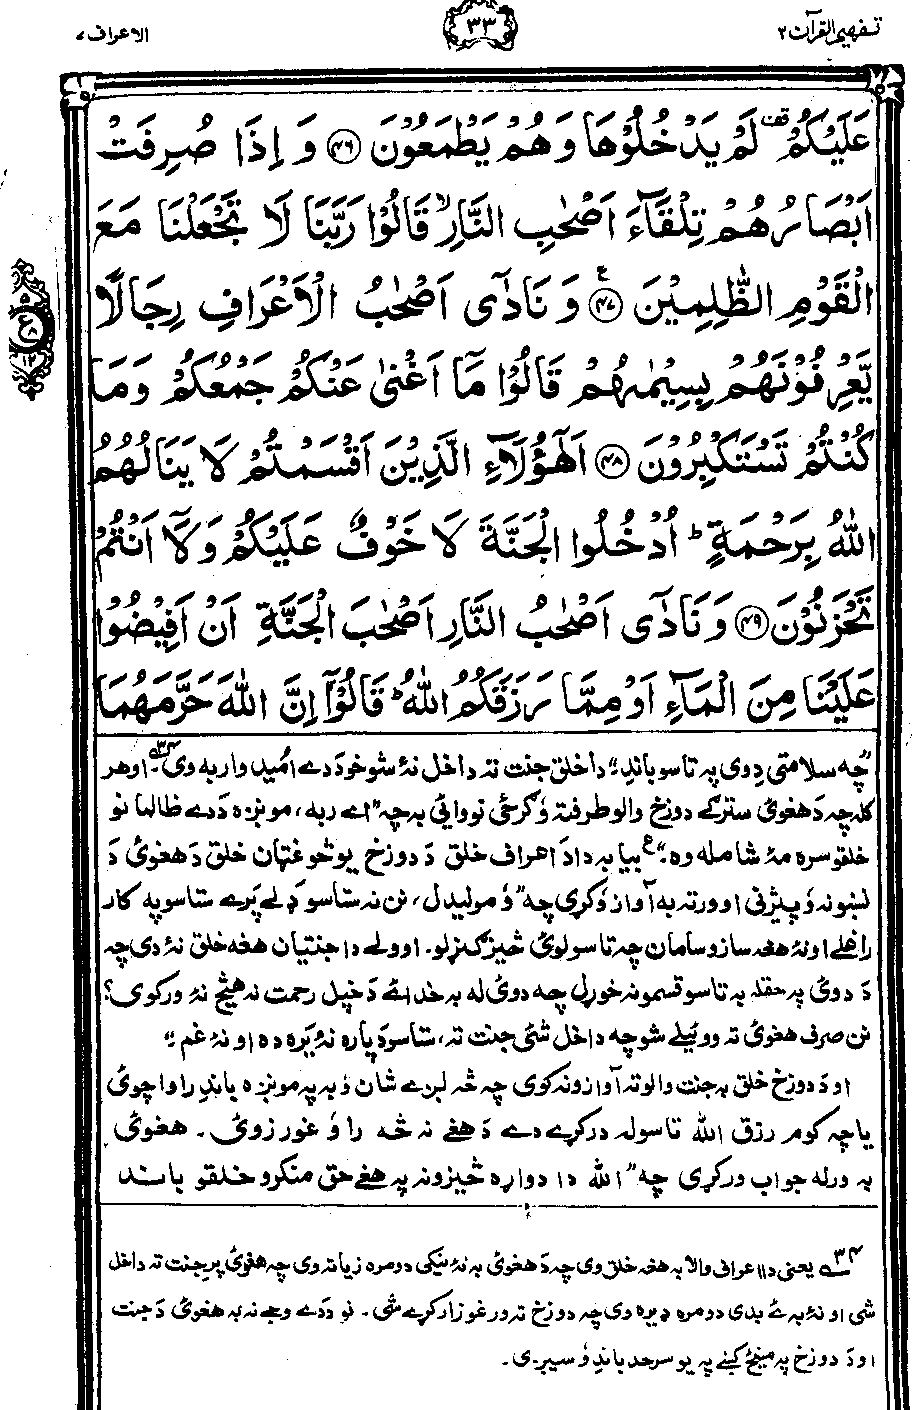 تفهيم القرآن ۲
۳۳
الاعراف ۷
عَلَيْكُمْ لَمْ يَدْخُلُوْهَا وَهُمْ يَطْمَعُوْنَ ﴿۴۶﴾ وَ اِذَا صُرِفَتْ
اَبْصَارُهُمْ تِلْقَآءَ اَصْحٰبِ النَّارِ ۙ قَالُوْا رَبَّنَا لَا تَجْعَلْنَا مَعَ
الْقَوْمِ الظّٰلِمِيْنَ ﴿۴۷﴾ۧ وَ نَادٰٓى اَصْحٰبُ الْاَعْرَافِ رِجَالًا
يَّعْرِفُوْنَهُمْ بِسِيْمٰىهُمْ قَالُوْا مَآ اَغْنٰى عَنْكُمْ جَمْعُكُمْ وَمَا
كُنْتُمْ تَسْتَكْبِرُوْنَ ﴿۴۸﴾ اَهٰٓؤُلَآءِ الَّذِيْنَ اَقْسَمْتُمْ لَا يَنَالُهُمُ
اللّٰهُ بِرَحْمَةٍ ؕ اُدْخُلُوا الْجَنَّةَ لَا خَوْفٌ عَلَيْكُمْ وَلَآ اَنْتُمْ
تَحْزَنُوْنَ ﴿۴۹﴾ وَنَادٰٓى اَصْحٰبُ النَّارِ اَصْحٰبَ الْجَنَّةِ اَنْ اَفِيْضُوْا
عَلَيْنَا مِنَ الْمَآءِ اَوْ مِمَّا رَزَقَكُمُ اللّٰهُ ؕ قَالُوْٓا اِنَّ اللّٰهَ حَرَّمَهُمَا
ع ۸ ۱۲
”چه سلامتی دِوی په تاسو باندِ“ دا خلق جنت ته داخل نۀ شو خو دَدے اُمید وار به وی ۳۴۔ او هر
کله چه دَ هغوئ سترګے دوزخ والو طرفته وګرځی نو وائی به چه ”اے ربه، مونږه دَدے ظالما نو
خلقو سره مۀ شامله وه“ ع بیا به دا دَ اعراف خلق دَ دوزخ یو څو غټان خلق دَ هغوئ دَ
نښونه وُ پیژنی او ورته به آواز وُکړی چه ”وُ مولیدل، نن نه ستاسو ډلے پَرے ستاسو په کار
راغلے او نۀ هغه سازو سامان چه تاسو لوئ څیز ګنړلو۔ او ولے دا جنتیان هغه خلق نۀ دی چه
دَ دوئ په حقله به تاسو قسمونه خوړل چه دوئ له به خدائے دَ خپل رحمت نه هیڅ نۀ ورکوی؟
نن صرف هغوئ ته ووئیلے شو چه داخل شئ جنت ته، ستاسو دَ پاره نۀ یَره ده او نۀ غم“۔
او دَ دوزخ خلق به جنت والو ته آوازونه کوی چه څه لږے شان اُ به په مونږه باندِ را واچوئ
یا چه کوم رزق الله تاسو له درکړے دے دَ هغے نه څه را وُ غورزوئ۔ هغوئ
به ورله جواب ورکړی چه ”الله دا دواړه څیزونه په هغے حق منکرو خلقو باند
۳۴ یعنی دا اعراف والا به هغه خلق وی چه دَ هغوئ به نۀ نیکی دومره زیاته وی چه هغوئ پرِ جنت ته داخل
شی او نۀ به ئے بدی دومره ډیره وی چه دوزخ ته ورغوزار کړے شی۔ نو دَدے وجے نه به هغوئ دَ جنت
او دَ دوزخ په مینځ کښے په یو سرحد باندِ وُسیږی۔